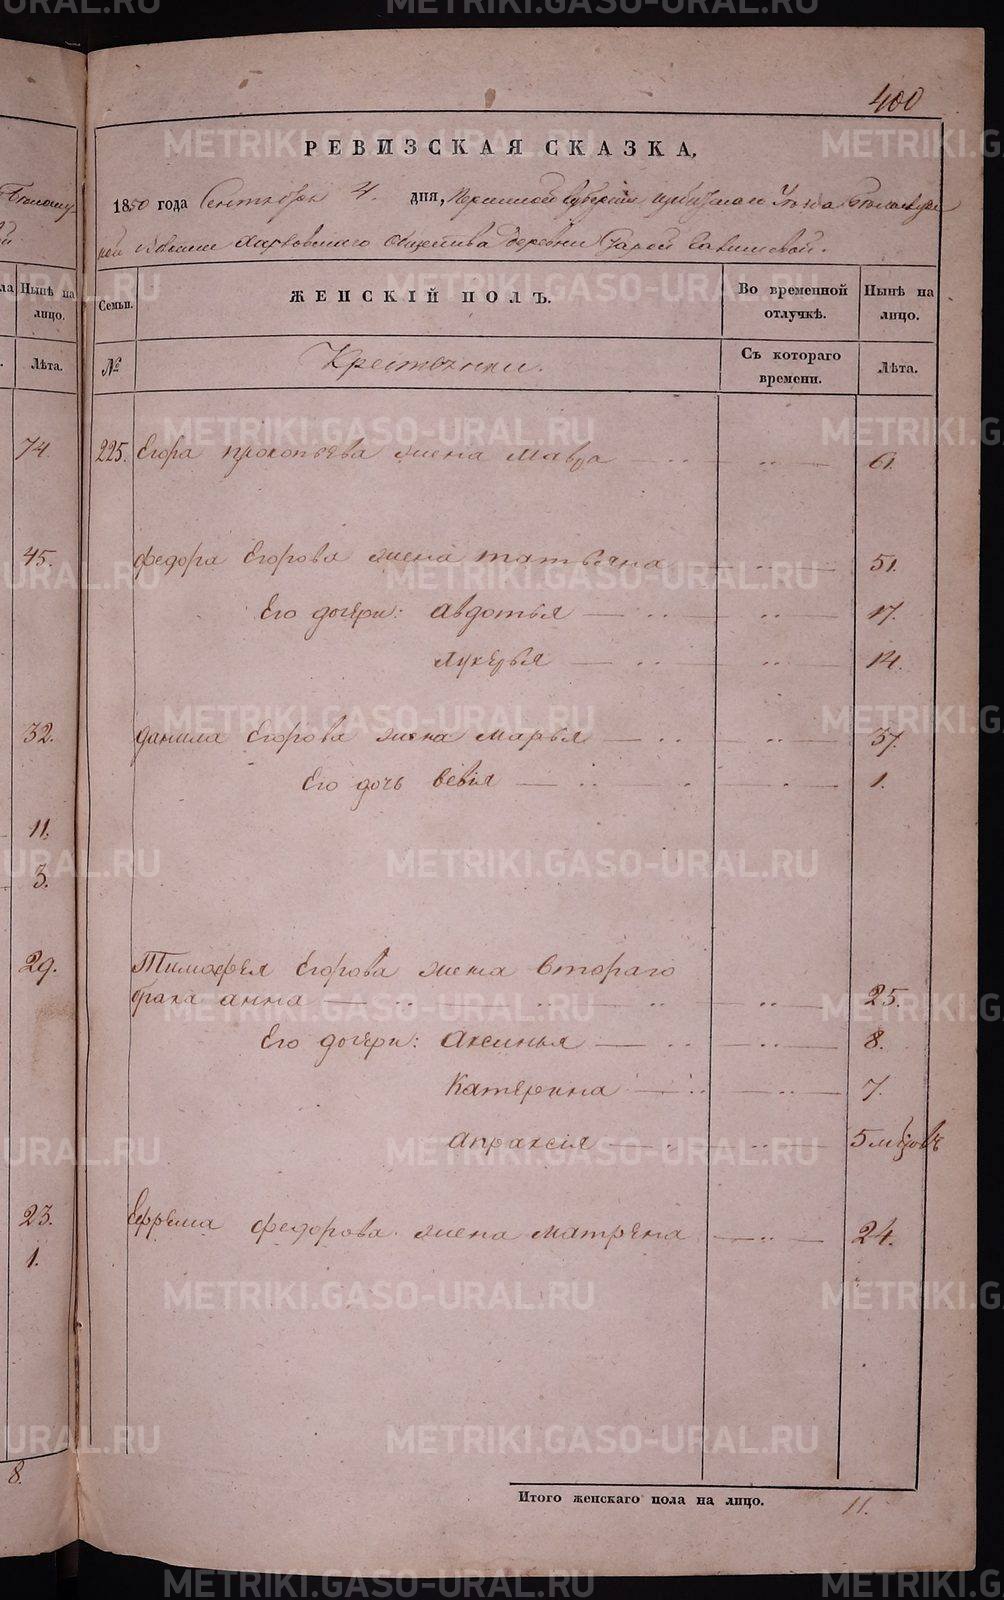 400
РЕВИЗСКАЯ СКАЗКА,
1850 года Сентября 4. дня, Пермской Губернии Ирбитскаго Уезда
Харловскаго Общества Деревни
Семьи.
ЖЕНСКІЙ ПОЛЪ.
Во временной отлучкѣ.
Нынѣ на лицо.
№
Крестьянки.
Съ котораго времени.
Лѣта.
225. Егора прокопьева жена Мавра 61.
федора Егорова жена татьяна 51.
Его дочери: Авдотья 17.
лукерья 14.
данила Егорова жена марья 37.
Его дочь 1.
Тимофея Егорова жена втораго
брака анна 25.
Его дочери: Аксинья 8.
Катерина 7.
Апраксія 5 мѣсовъ
Ефрема федорова жена матрена 24.
Итого женскаго пола на лицо. 11.
Нынѣ на лицо.
Лѣта.
74.
45.
32.
11.
3.
29.
23.
1.
8.
METRIKI.GASO-URAL.RU